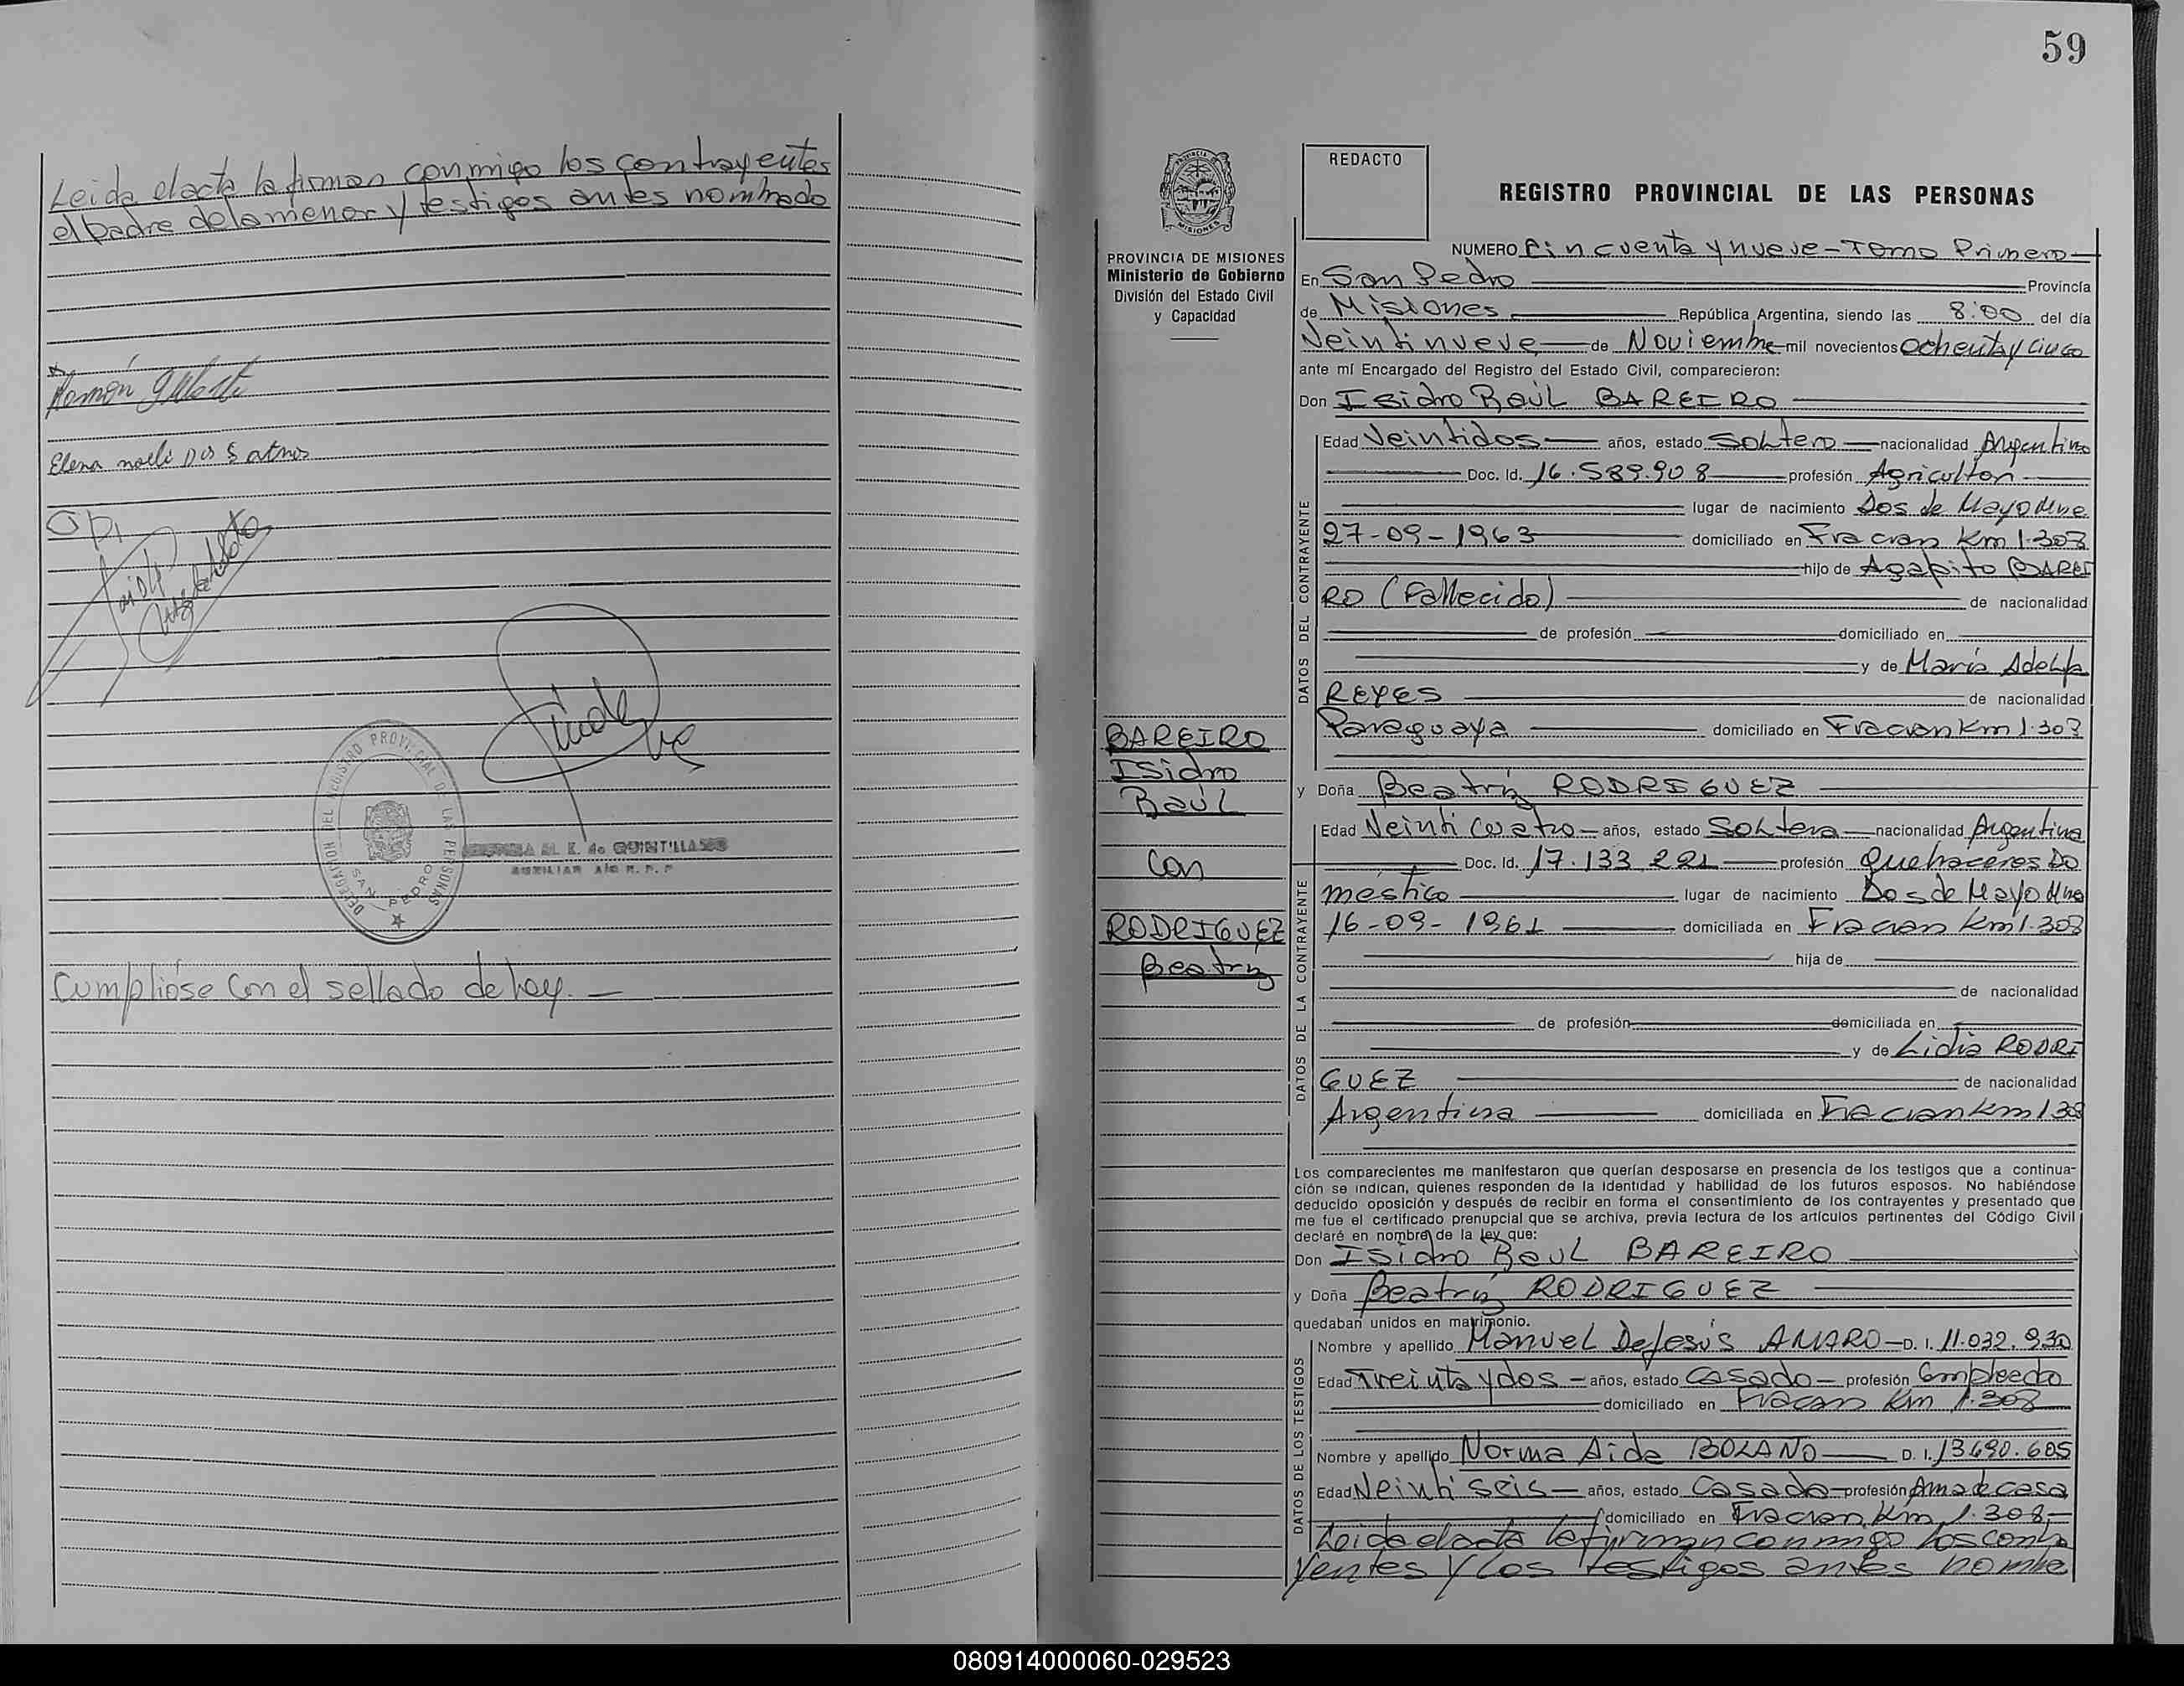 Leida el acta la firman conmigo los contrayentes
el padre de la menor y testigos antes nombrado
Ramón
Elena noeli Dos Santos
DELEGACION DEL REGISTRO PROVINCIAL DE LAS PERSONAS
SAN PEDRO
de QUINTILLANS
AUXILIAR
Cumpliose con el sellado de ley. —
59
PROVINCIA DE MISIONES
Ministerio de Gobierno
División del Estado Civil
y Capacidad
BAREIRO
Isidro
Raúl
Con
RODRIGUEZ
Beatriz
REDACTO
REGISTRO PROVINCIAL DE LAS PERSONAS
NUMERO Cincuenta y nueve - Tomo Primero
En San Pedro Provincia
de Misiones República Argentina, siendo las 8:00 del día
Veintinueve de Noviembre mil novecientos ochenta y cinco
ante mí Encargado del Registro del Estado Civil, comparecieron:
Don Isidro Raúl BAREIRO
DATOS DEL CONTRAYENTE
Edad Veintidos años, estado Soltero nacionalidad Argentino
Doc. Id. 16.589.908 profesión Agricultor
lugar de nacimiento Dos de Mayo Mne
27-09-1963 domiciliado en Fracran Km 1.308
hijo de Agapito BAREI
RO (Fallecido) de nacionalidad
de profesión domiciliado en
y de María Adelfa
REYES de nacionalidad
Paraguaya domiciliado en Fracran Km 1.308
y Doña Beatriz RODRIGUEZ
DATOS DE LA CONTRAYENTE
Edad Veinticuatro años, estado Soltera nacionalidad Argentina
Doc. Id. 17.133.221 profesión Quehaceres Do
méstico lugar de nacimiento Dos de Mayo Mne
16-09-1961 domiciliada en Fracran Km 1.308
hija de
de nacionalidad
de profesión domiciliada en
y de Lidia RODRI
GUEZ de nacionalidad
Argentina domiciliada en Fracran Km 1308
Los comparecientes me manifestaron que querían desposarse en presencia de los testigos que a continua-
ción se indican, quienes responden de la identidad y habilidad de los futuros esposos. No habiéndose
deducido oposición y después de recibir en forma el consentimiento de los contrayentes y presentado que
me fue el certificado prenupcial que se archiva, previa lectura de los artículos pertinentes del Código Civil
declaré en nombre de la ley que:
Don Isidro Raul BAREIRO
y Doña Beatriz RODRIGUEZ
quedaban unidos en matrimonio.
DATOS DE LOS TESTIGOS
Nombre y apellido Manuel DeJesús AMARO D. I. 11.032.930
Edad Treinta y dos años, estado Casado profesión Empleado
domiciliado en Fracan Km 1.308
Nombre y apellido Norma Aida BOLAÑO D. I. 13690.605
Edad Veintiseis años, estado Casada profesión Ama de casa
domiciliado en Fracran Km 1.308,
Leida el acta la firman conmigo los contra
yentes y los testigos antes nombra
080914000060-029523